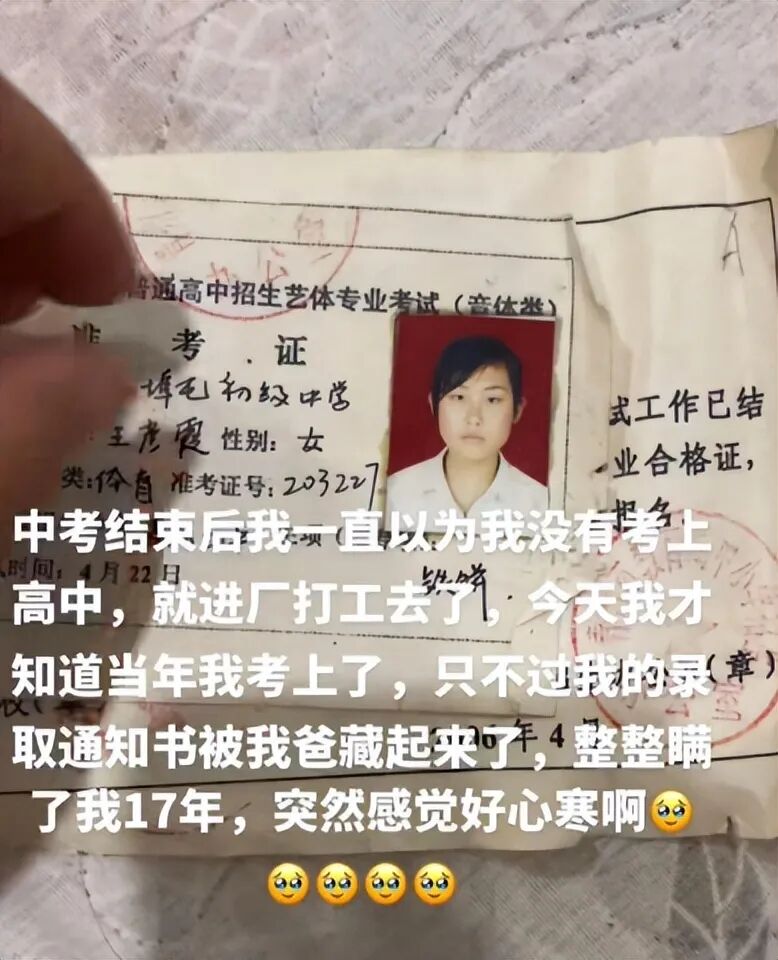 办公
普通高中招生艺体专业考试（音体类）
准考证
埠屯初级中学
王彦霞 性别：女
类：体育 准考证号：203227
A
式工作已结
业合格证，
报名。
时间：4月22日
铁饼.
（章）
2006年4月
中考结束后我一直以为我没有考上
高中，就进厂打工去了，今天我才
知道当年我考上了，只不过我的录
取通知书被我爸藏起来了，整整瞒
了我17年，突然感觉好心寒啊🥹
🥹🥹🥹🥹